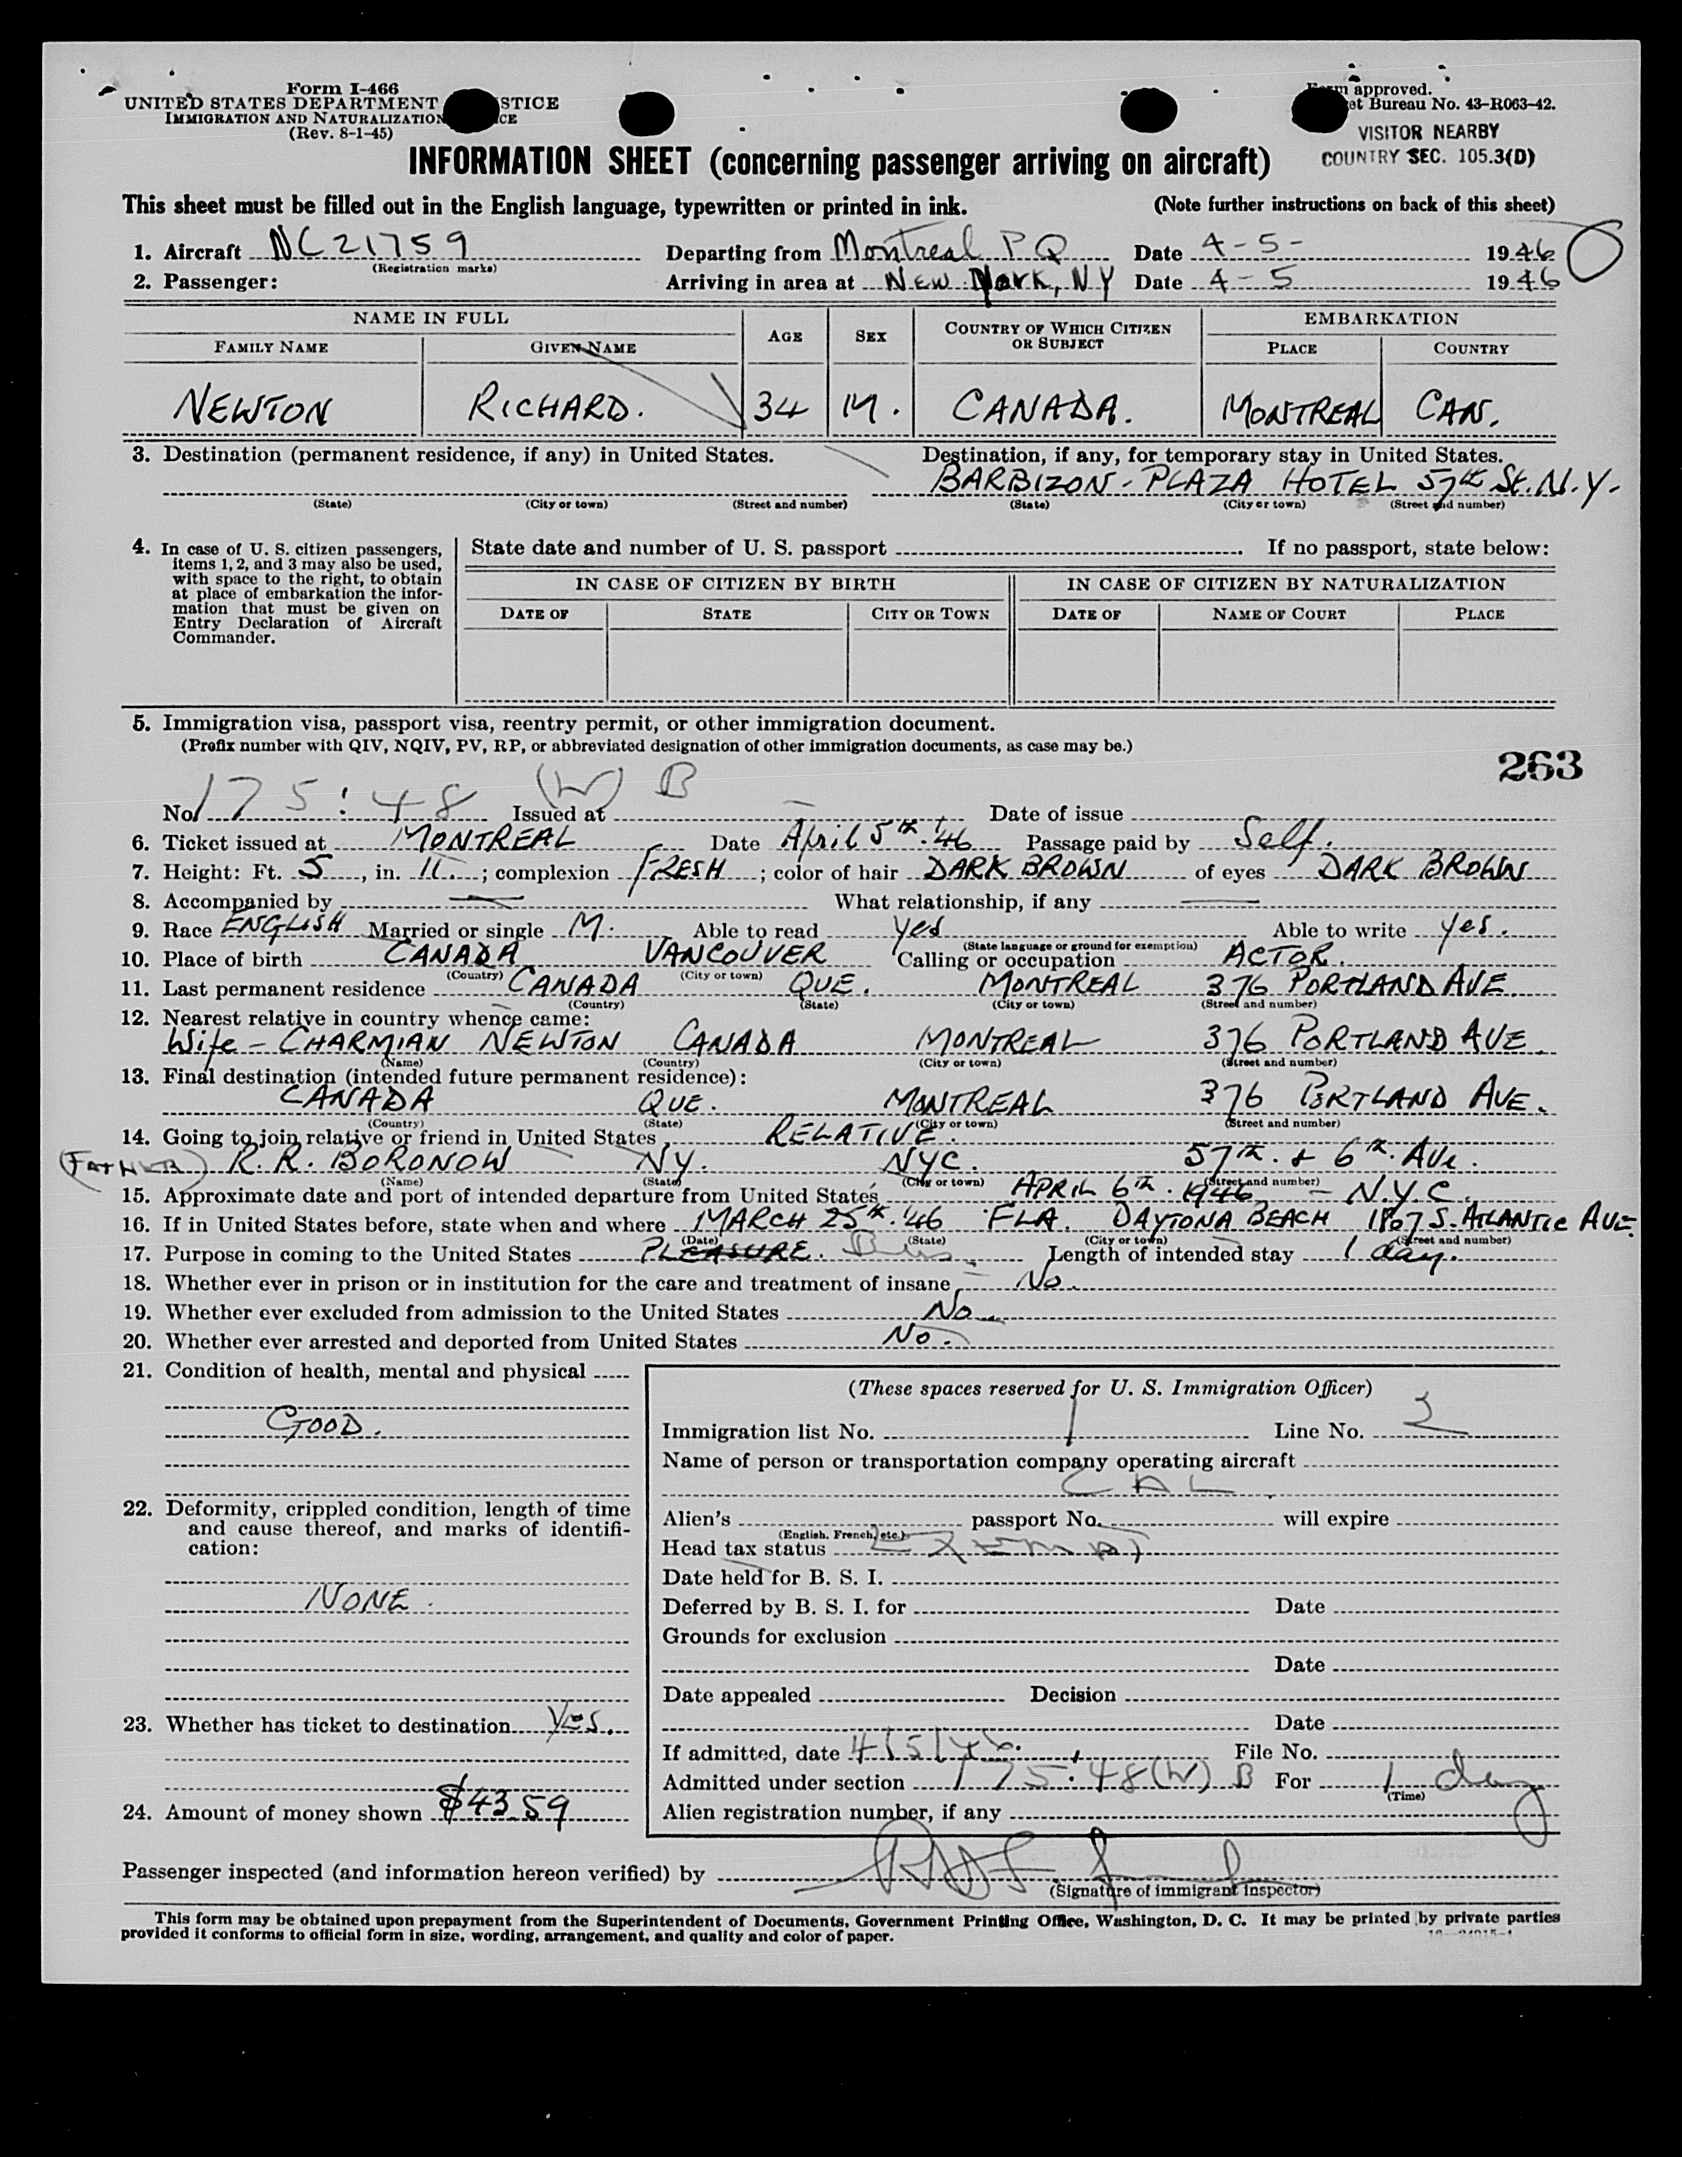 Form I-466
UNITED STATES DEPARTMENT STICE
IMMIGRATION AND NATURALIZATION CE
(Rev. 8-1-45)
approved.
et Bureau No. 43-R063-42.
VISITOR NEARBY
COUNTRY SEC. 105.3(D)
INFORMATION SHEET (concerning passenger arriving on aircraft)
This sheet must be filled out in the English language, typewritten or printed in ink. (Note further instructions on back of this sheet)
1. Aircraft NC21759 Departing from Montreal P Q Date 4-5- 1946
(Registration marks)
2. Passenger: Arriving in area at New York, NY Date 4-5 1946
NAME IN FULL AGE SEX COUNTRY OF WHICH CITIZEN OR SUBJECT EMBARKATION
FAMILY NAME GIVEN NAME PLACE COUNTRY
NEWTON RICHARD. 34 M. CANADA. MONTREAL CAN.
3. Destination (permanent residence, if any) in United States. Destination, if any, for temporary stay in United States.
BARBIZON-PLAZA HOTEL 57th St. N.Y.
(State) (City or town) (Street and number) (State) (City or town) (Street and number)
4. In case of U. S. citizen passengers, items 1, 2, and 3 may also be used, with space to the right, to obtain at place of embarkation the information that must be given on Entry Declaration of Aircraft Commander.
State date and number of U. S. passport . If no passport, state below:
IN CASE OF CITIZEN BY BIRTH IN CASE OF CITIZEN BY NATURALIZATION
DATE OF STATE CITY OR TOWN DATE OF NAME OF COURT PLACE
5. Immigration visa, passport visa, reentry permit, or other immigration document.
(Prefix number with QIV, NQIV, PV, RP, or abbreviated designation of other immigration documents, as case may be.)
263
No. 175:48 (W) B Issued at Date of issue
6. Ticket issued at MONTREAL Date April 5th '46 Passage paid by Self.
7. Height: Ft. 5, in. 11.; complexion FRESH; color of hair DARK BROWN of eyes DARK BROWN
8. Accompanied by — What relationship, if any —
9. Race ENGLISH Married or single M. Able to read Yes Able to write Yes.
(State language or ground for exemption)
10. Place of birth CANADA VANCOUVER Calling or occupation ACTOR.
(Country) (City or town)
11. Last permanent residence CANADA QUE. MONTREAL 376 PORTLAND AVE.
(Country) (State) (City or town) (Street and number)
12. Nearest relative in country whence came:
Wife - CHARMIAN NEWTON CANADA MONTREAL 376 PORTLAND AVE.
(Name) (Country) (City or town) (Street and number)
13. Final destination (intended future permanent residence):
CANADA QUE. MONTREAL 376 PORTLAND AVE.
(Country) (State) (City or town) (Street and number)
14. Going to join relative or friend in United States RELATIVE.
(FATHER) R. R. BORONOW NY. NYC. 57th. & 6th. AVE.
(Name) (State) (City or town) (Street and number)
15. Approximate date and port of intended departure from United States APRIL 6th. 1946 - N.Y.C.
16. If in United States before, state when and where MARCH 25th. '46 FLA. DAYTONA BEACH 1807 S. ATLANTIC AVE.
(Date) (State) (City or town) (Street and number)
17. Purpose in coming to the United States PLEASURE. Bus. Length of intended stay 1 day.
18. Whether ever in prison or in institution for the care and treatment of insane No.
19. Whether ever excluded from admission to the United States No.
20. Whether ever arrested and deported from United States No.
21. Condition of health, mental and physical
GOOD.
22. Deformity, crippled condition, length of time and cause thereof, and marks of identification:
NONE.
23. Whether has ticket to destination Yes.
24. Amount of money shown $43 59
(These spaces reserved for U. S. Immigration Officer)
Immigration list No. 1 Line No. 2
Name of person or transportation company operating aircraft
CAL
Alien's passport No. will expire
(English, French, etc.)
Head tax status EXEMPT
Date held for B. S. I.
Deferred by B. S. I. for Date
Grounds for exclusion
Date
Date appealed Decision
Date
If admitted, date 4/5/46. File No.
Admitted under section 175.48(W) B For 1 day
(Time)
Alien registration number, if any
Passenger inspected (and information hereon verified) by
(Signature of immigrant inspector)
This form may be obtained upon prepayment from the Superintendent of Documents, Government Printing Office, Washington, D. C. It may be printed by private parties
provided it conforms to official form in size, wording, arrangement, and quality and color of paper.